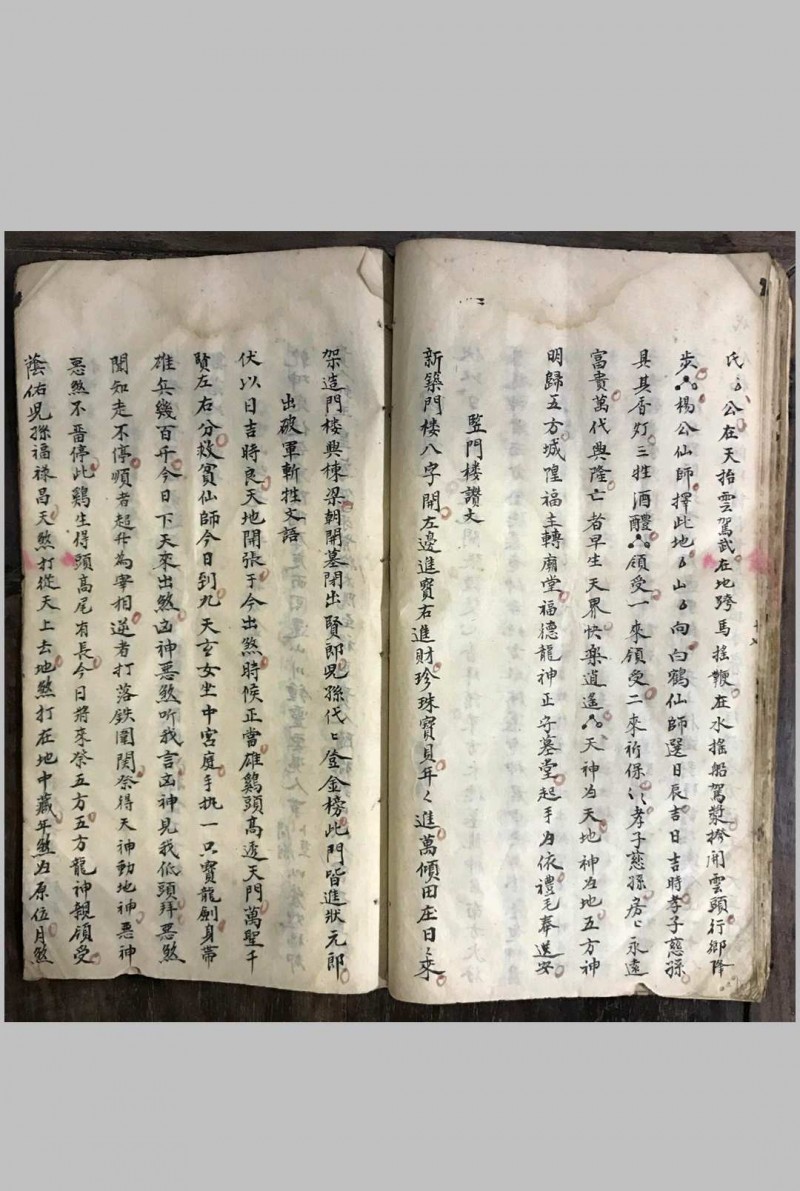 氏〻公在天抬雲駕武在地跨馬搖鞭在水搖船駕槳撡開雲頭行鄉降
步楊公仙師擇此地〻山〻向白鶴仙師選日辰吉日吉時孝子慈孫
具其香灯三牲酒醴領受一來領受二來祈保〻孝子慈孫房〻永遠
富貴萬代興隆亡者早生天界快楽逍遥天神为天地神为地五方神
明歸五方城隍福主轉廟堂福德龍神正守墓堂起手为依禮毛奉送安
監門楼讚文
新築門楼八字開左邊進寶右進財珍珠寶貝年〻進萬傾田庄日〻來
架造門楼興棟梁朝開墓閉出賢郎児孫代〻登金榜此門皆進狀元郎
出破軍斬牲文語
伏以日吉時良天地開張于今出煞時候正當雄鷄頭高透天門萬聖千
賢左右分救貧仙師今日到九天玄女坐中宮庭手执一只寶龍劍身帶
雄兵幾百千今日下天來出煞凶神惡煞听我言凶神見我低頭拜惡煞
聞知走不停順者超升為宰相逆者打落鉄圍関祭得天神動地神惡神
惡煞不畱停此鷄生得頭高尾有長今日將來祭五方五方龍神親領受
蔭佑児孫福祿昌天煞打從天上去地煞打在地中藏年煞为原位月煞